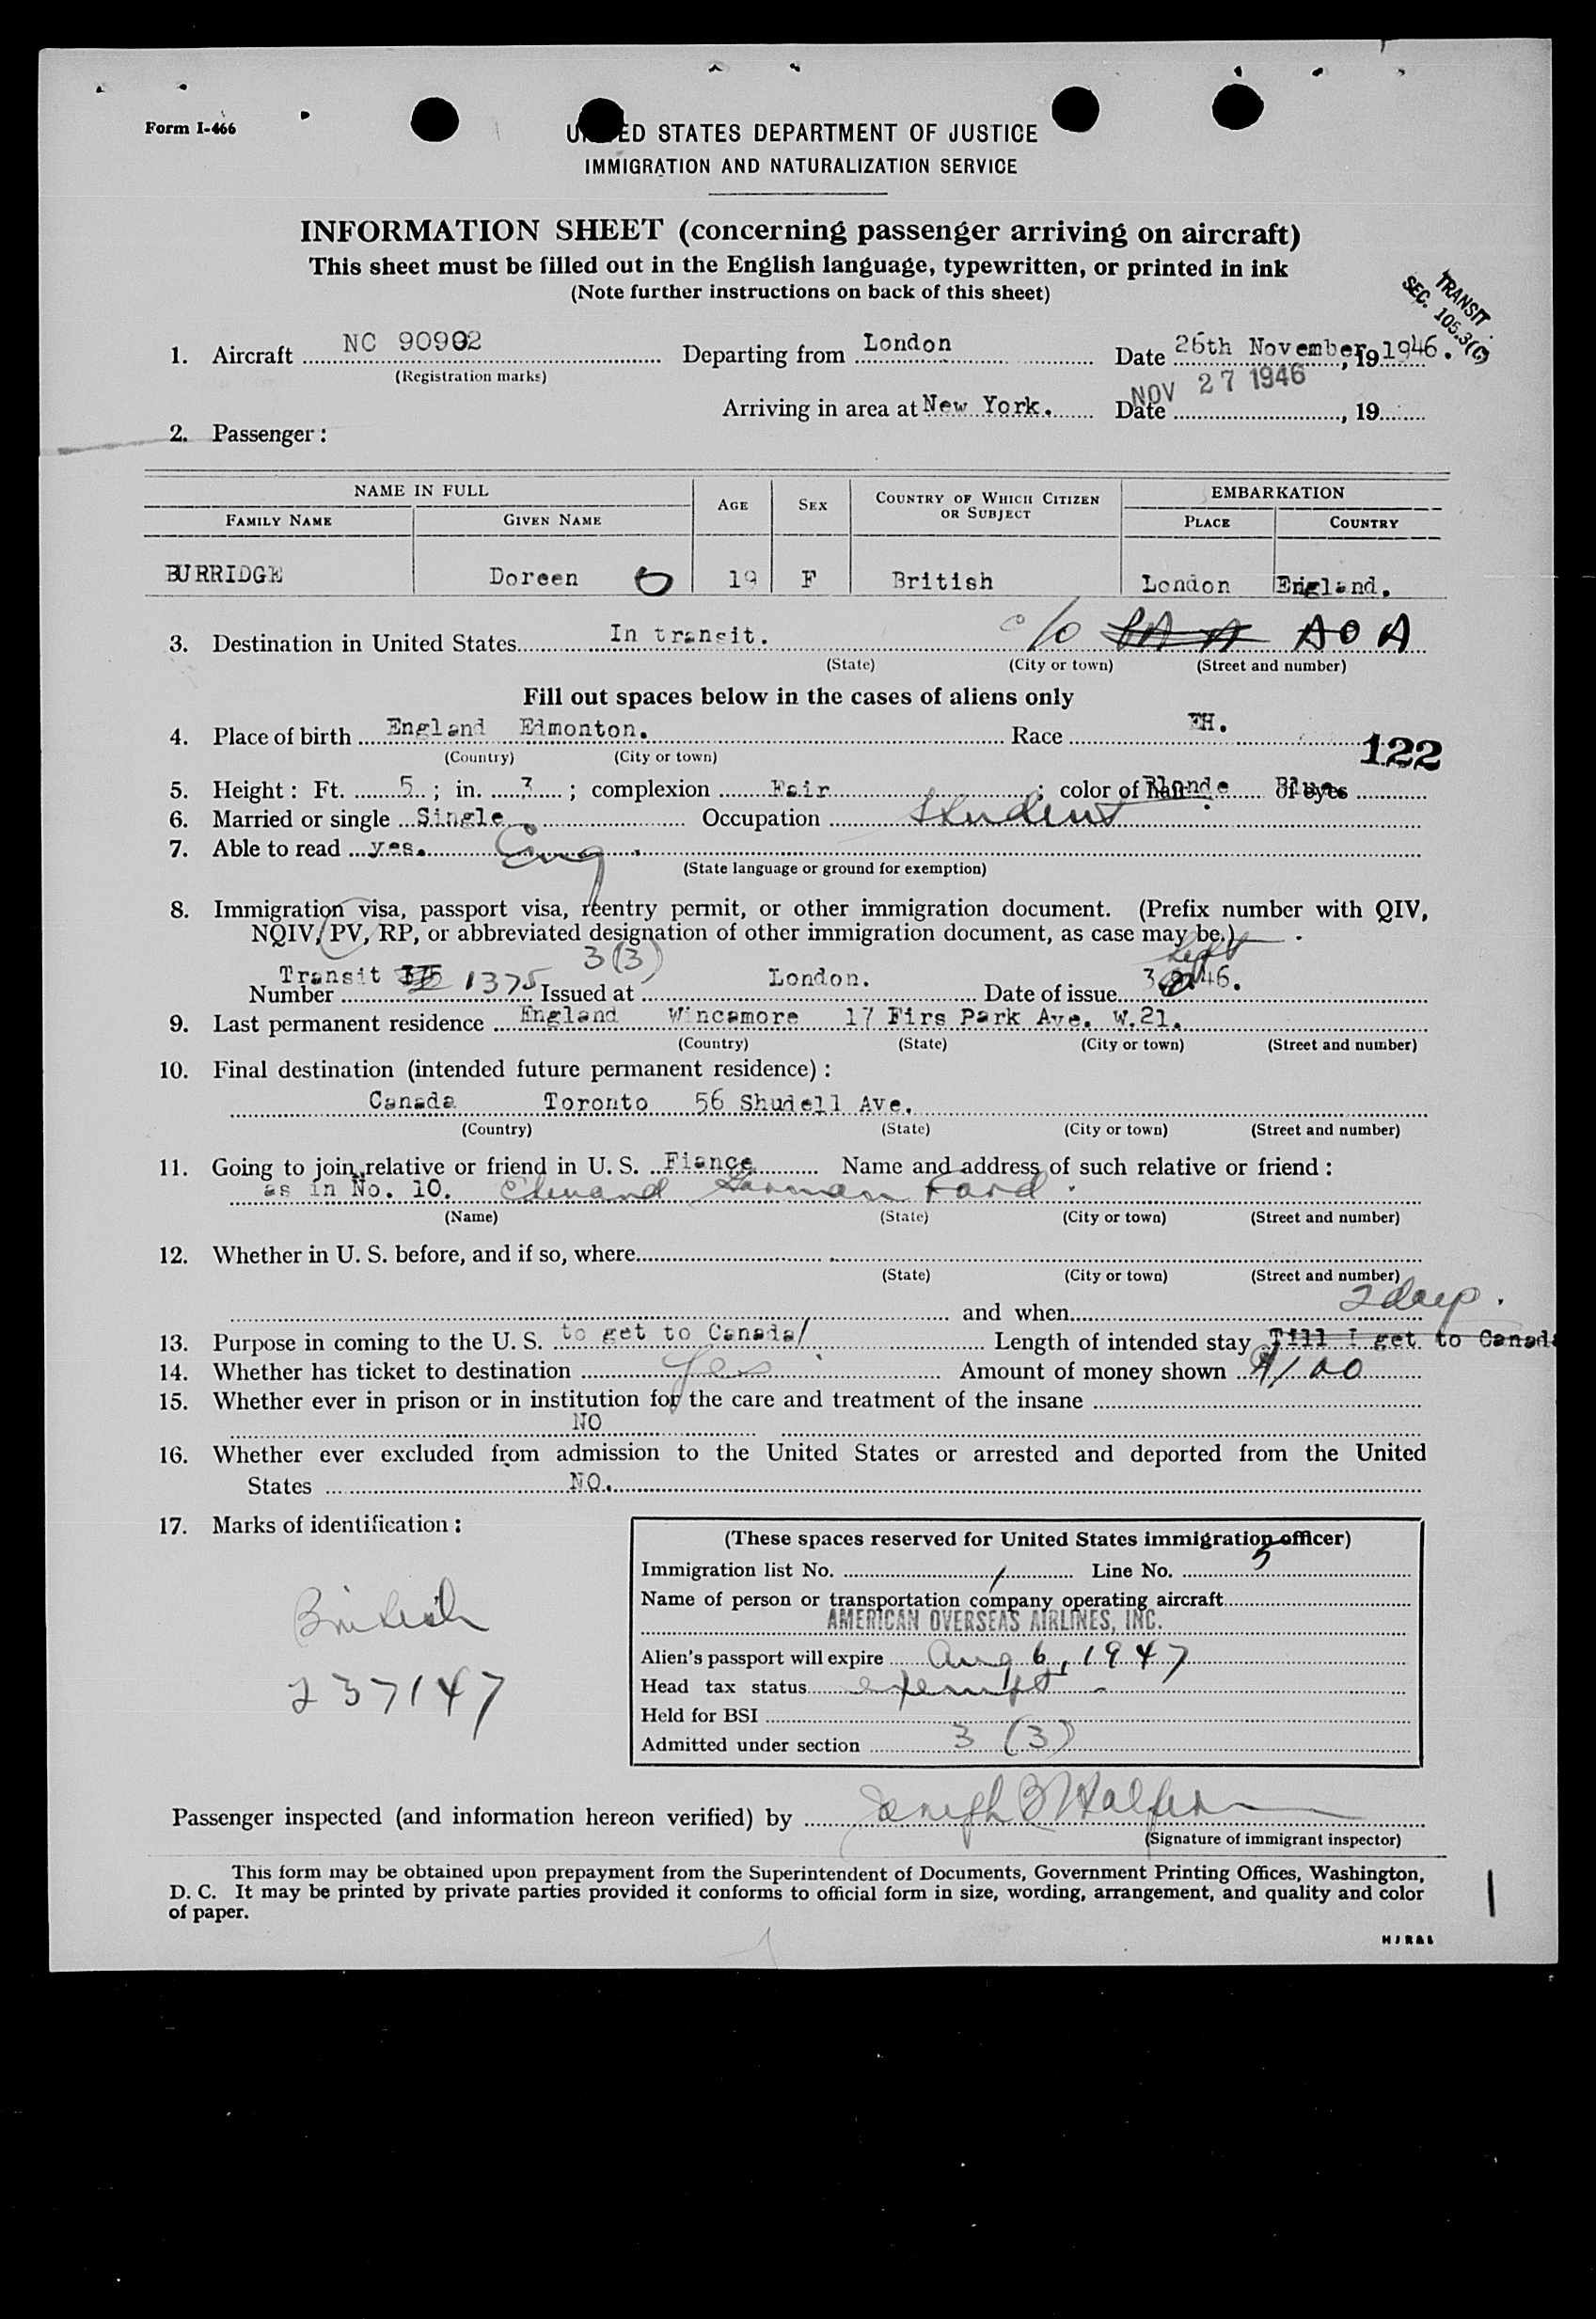 Form I-466
UNITED STATES DEPARTMENT OF JUSTICE
IMMIGRATION AND NATURALIZATION SERVICE
INFORMATION SHEET (concerning passenger arriving on aircraft)
This sheet must be filled out in the English language, typewritten, or printed in ink
(Note further instructions on back of this sheet)
TRANSIT
SEC. 105.3(G)
1. Aircraft NC 90902 Departing from London Date 26th November, 19 1946.
(Registration marks)
Arriving in area at New York. Date NOV 27 1946, 19
2. Passenger:
NAME IN FULL AGE SEX COUNTRY OF WHICH CITIZEN OR SUBJECT EMBARKATION
FAMILY NAME GIVEN NAME PLACE COUNTRY
BURRIDGE Doreen 19 F British London England.
3. Destination in United States In transit. c/o PAA AOA
(State) (City or town) (Street and number)
Fill out spaces below in the cases of aliens only
4. Place of birth England Edmonton. Race
(Country) (City or town)
122
5. Height: Ft. 5; in. 3; complexion Fair; color of hair Blonde of eyes Blue
6. Married or single Single Occupation Student
7. Able to read yes. Eng.
(State language or ground for exemption)
8. Immigration visa, passport visa, reentry permit, or other immigration document. (Prefix number with QIV,
NQIV, PV, RP, or abbreviated designation of other immigration document, as case may be.)
3(3) Sept
Transit 1375 London. 3 46.
Number Issued at Date of issue
9. Last permanent residence England Wincamore 17 Firs Park Ave. W.21.
(Country) (State) (City or town) (Street and number)
10. Final destination (intended future permanent residence):
Canada Toronto 56 Shudell Ave.
(Country) (State) (City or town) (Street and number)
11. Going to join relative or friend in U. S. Fiance Name and address of such relative or friend:
as in No. 10. Edward Ford.
(Name) (State) (City or town) (Street and number)
12. Whether in U. S. before, and if so, where
(State) (City or town) (Street and number)
and when
2 days.
13. Purpose in coming to the U. S. to get to Canada/ Length of intended stay Till I get to Canada
14. Whether has ticket to destination Yes Amount of money shown $100
15. Whether ever in prison or in institution for the care and treatment of the insane
NO
16. Whether ever excluded from admission to the United States or arrested and deported from the United
States NO.
17. Marks of identification:
British
237147
(These spaces reserved for United States immigration officer)
Immigration list No. 1 Line No. 5
Name of person or transportation company operating aircraft
AMERICAN OVERSEAS AIRLINES, INC.
Alien's passport will expire Aug 6, 1947
Head tax status exempt
Held for BSI
Admitted under section 3 (3)
Passenger inspected (and information hereon verified) by Joseph B Halpern
(Signature of immigrant inspector)
This form may be obtained upon prepayment from the Superintendent of Documents, Government Printing Offices, Washington,
D. C. It may be printed by private parties provided it conforms to official form in size, wording, arrangement, and quality and color
of paper.